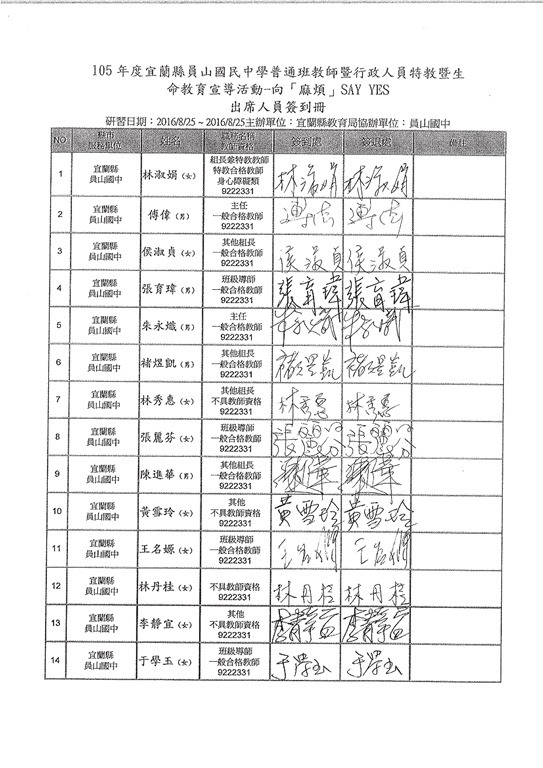 105 年度宜蘭縣員山國民中學普通班教師暨行政人員特教暨生
命教育宣導活動-向「麻煩」SAY YES
出席人員簽到冊
研習日期：2016/8/25 ~ 2016/8/25主辦單位：宜蘭縣教育局協辦單位：員山國中
NO 縣市 服務單位 姓名 職務名稱 教師資格 簽到處 簽退處 備註
1 宜蘭縣 員山國中 林淑娟 (女) 組長兼特教教師 特教合格教師 身心障礙類 9222331 林淑娟 林淑娟
2 宜蘭縣 員山國中 傅偉 (男) 主任 一般合格教師 9222331
3 宜蘭縣 員山國中 侯淑貞 (女) 其他組長 一般合格教師 9222331 侯淑貞 侯淑貞
4 宜蘭縣 員山國中 張育瑋 (男) 班級導師 一般合格教師 9222331 張育瑋 張育瑋
5 宜蘭縣 員山國中 朱永熾 (男) 主任 一般合格教師 9222331
6 宜蘭縣 員山國中 褚煜凱 (男) 其他組長 一般合格教師 9222331 褚煜凱 褚煜凱
7 宜蘭縣 員山國中 林秀惠 (女) 其他組長 不具教師資格 9222331 林秀惠 林秀惠
8 宜蘭縣 員山國中 張麗芬 (女) 班級導師 一般合格教師 9222331 張麗芬 張麗芬
9 宜蘭縣 員山國中 陳進華 (男) 其他組長 一般合格教師 9222331
10 宜蘭縣 員山國中 黃雪玲 (女) 其他 不具教師資格 9222331 黃雪玲 黃雪玲
11 宜蘭縣 員山國中 王名嫄 (女) 班級導師 一般合格教師 9222331
12 宜蘭縣 員山國中 林丹桂 (女) 不具教師資格 9222331 林丹桂 林丹桂
13 宜蘭縣 員山國中 李靜宜 (女) 其他 不具教師資格 9222331 李靜宜 李靜宜
14 宜蘭縣 員山國中 于學玉 (女) 班級導師 一般合格教師 9222331 于學玉 于學玉